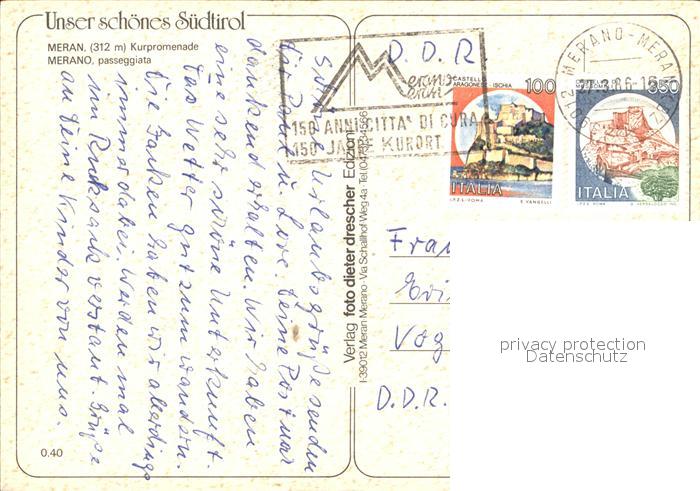 Unser schönes Südtirol
MERAN, (312 m) Kurpromenade
MERANO, passeggiata
Schöne Urlaubsgrüße senden
dir Hans u. Lore. Deine Post war
dankend erhalten. Wir haben
eine sehr schöne Unterkunft.
Das Wetter gut zum wandern.
Die Jacken haben wir allerdings
immer dabei. Werden mal
im Rucksack verstaut. Grüße
an Deine Kinder von uns.
0.40
Verlag foto dieter drescher Edizioni
I-39012 Meran Merano · Via Schaffhof Weg 4a
D.D.R
Merano
Meran
150 ANNI CITTA' DI CURA
150 JAHRE KURORT
CASTELLO
ARAGONESE - ISCHIA
100
ITALIA
I.P.Z.S. - ROMA
E. VANGELLI
350
ITALIA
I.P.Z.S. - ROMA
39012 MERANO - MERAN
Fra
Vog
D.D.R.
privacy protection
Datenschutz